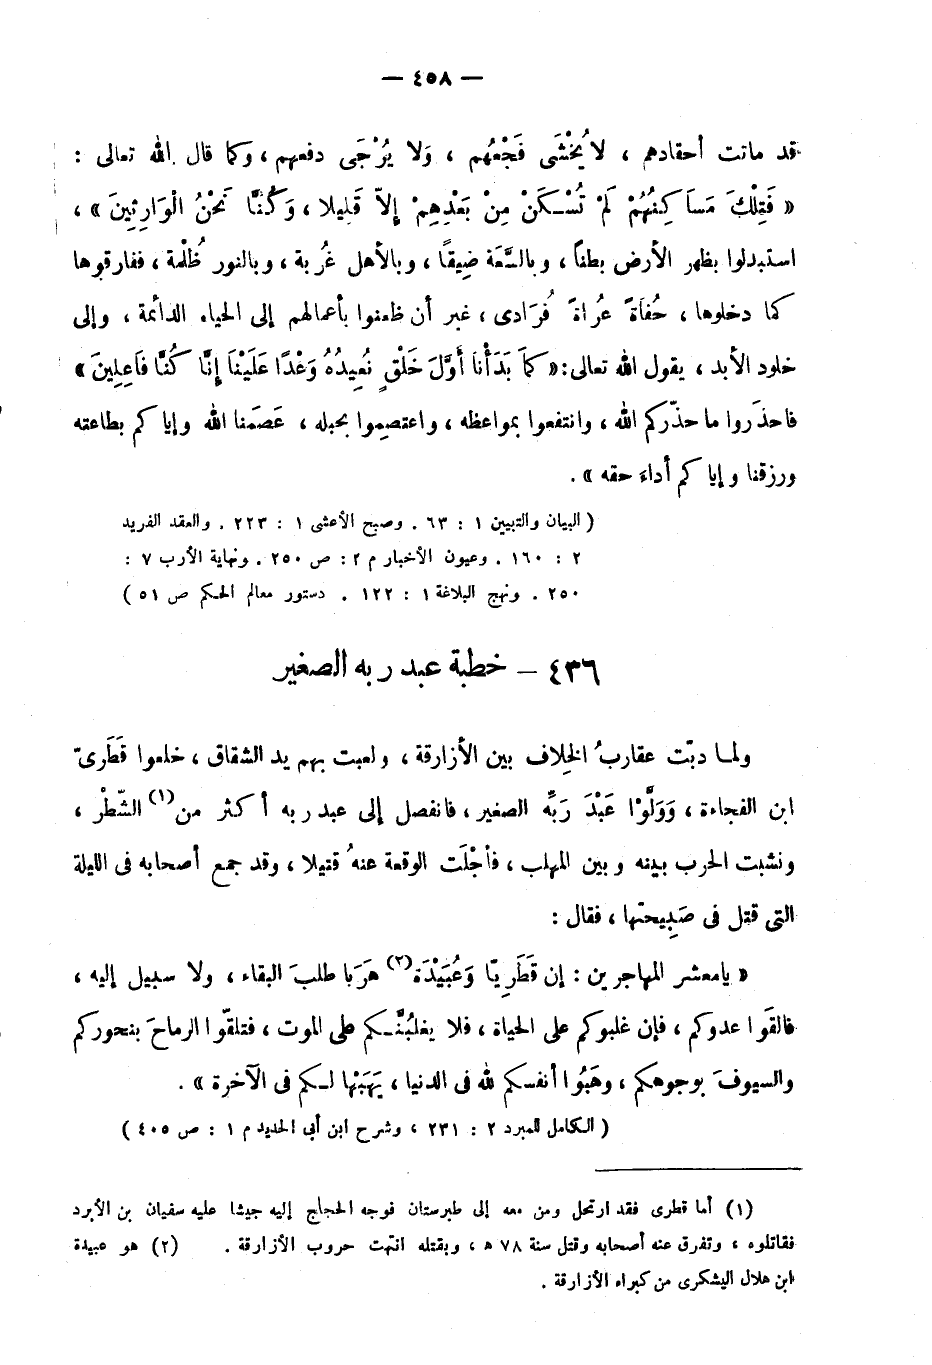 — ٤٥٨ —
قد ماتت أحقادهم ، لا يُخْشَى فَجْعُهم ، وَلا يُرْجَى دفعهم ، وكما قال الله تعالى :
« فَتِلْكَ مَسَاكِنُهُمْ لَمْ تُسْكَنْ مِنْ بَعْدِهِمْ إِلاَّ قَلِيلا ، وَكُنَّا نَحْنُ الْوَارِثِينَ » ،
استبدلوا بظهر الأرض بطنًا ، وبالسَّعَة ضِيقًا ، وبالأهل غُربة ، وبالنور ظُلْمة ، ففارقوها
كما دخلوها ، حُفَاةً عُراةً فُرَادى ، غير أن ظعنوا بأعمالهم إلى الحياة الدائمة ، وإلى
خلود الأبد ، يقول الله تعالى : « كَمَا بَدَأْنَا أَوَّلَ خَلْقٍ نُعِيدُهُ وَعْدًا عَلَيْنَا إِنَّا كُنَّا فَاعِلِينَ »
فاحذَروا ما حذّركم الله ، وانتفعوا بمواعظه ، واعتصِموا بحبله ، عَصَمنا الله وإياكم بطاعته
ورزقنا وإياكم أداءَ حقه » .
( البيان والتبيين ١ : ٦٣ . وصبح الأعشى ١ : ٢٢٣ . والعقد الفريد
٢ : ١٦٠ . وعيون الأخبار م ٢ : ص ٢٥٠ . ونهاية الأرب ٧ :
٢٥٠ . ونهج البلاغة ١ : ١٢٢ . دستور معالم الحكم ص ٥١ )
٤٣٦ – خطبة عبد ربه الصغير
ولما دبّت عقاربُ الخِلاف بين الأزارقة ، ولعبت بهم يد الشقاق ، خلعوا قَطَرىّ
ابن الفجاءة ، وَوَلَّوْا عَبْدَ رَبِّه الصغير ، فانفصل إلى عبد ربه أكثر من (١) الشّطْر ،
ونشبت الحرب بينه وبين المهلب ، فأجْلَت الوقعة عنهُ قتيلا ، وقد جمع أصحابه فى الليلة
التى قتل فى صَبِيحتها ، فقال :
« يا معشر المهاجرين : إن قَطَرِيًّا وَعُبَيْدَة (٢) هَرَبا طلبَ البقاء ، ولا سبيل إليه ،
فالقَوا عدوكم ، فإن غلبوكم على الحياة ، فلا يغلبُنَّكم على الموت ، فتلقّوا الرماحَ بنحوركم
والسيوفَ بوجوهكم ، وهَبُوا أنفسكم لله فى الدنيا ، يَهَبْها لكم فى الآخرة » .
( الكامل للمبرد ٢ : ٢٣١ ، وشرح ابن أبى الحديد م ١ : ص ٤٠٥ )
(١) أما قطرى فقد ارتحل ومن معه إلى طبرستان فوجه الحجاج إليه جيشا عليه سفيان بن الأبرد
فقاتلوه ، وتفرق عنه أصحابه وقتل سنة ٧٨ ه ، وبقتله انتهت حروب الأزارقة . (٢) هو عبيدة
ابن هلال اليشكرى من كبراء الأزارقة .